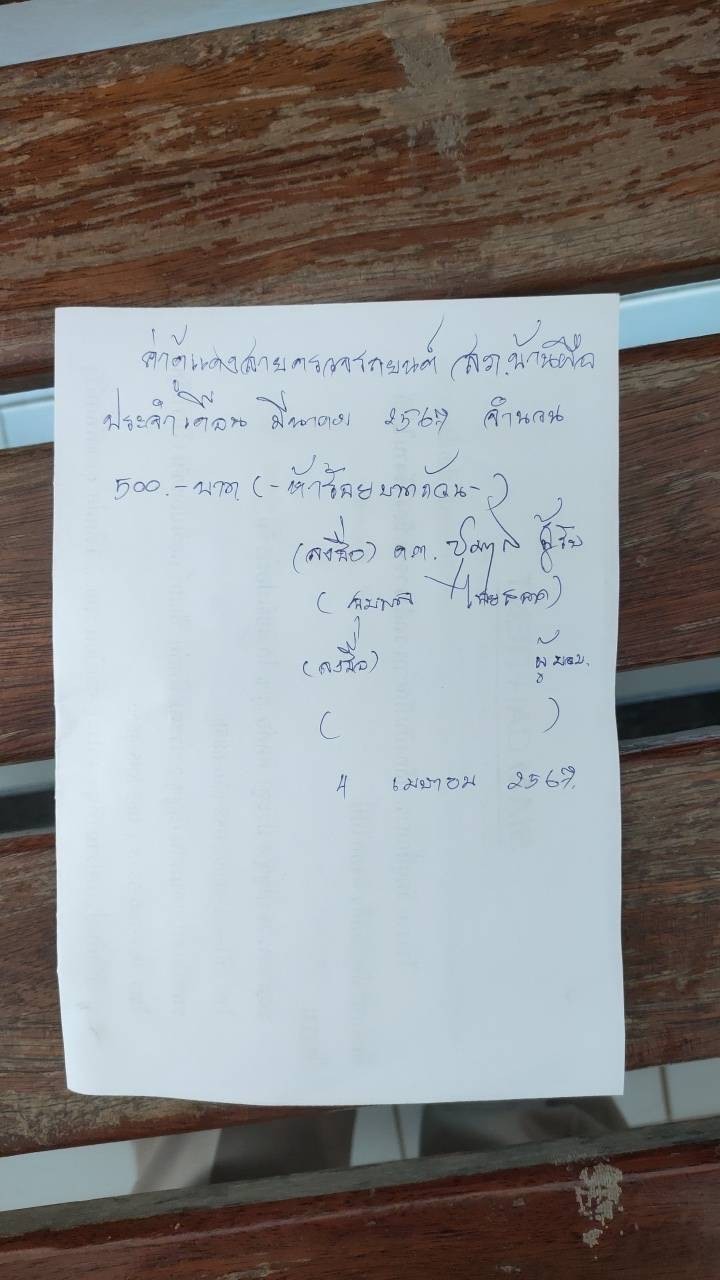 ค่าตู้แดงสายตรวจรถยนต์ สภ.บ้านผือ
ประจำเดือน มีนาคม 2567 จำนวน
500.- บาท (- ห้าร้อยบาทถ้วน -)
(ลงชื่อ) ด.ต. ผู้รับ
(ลงชื่อ) ผู้มอบ.
( )
4 เมษายน 2567.